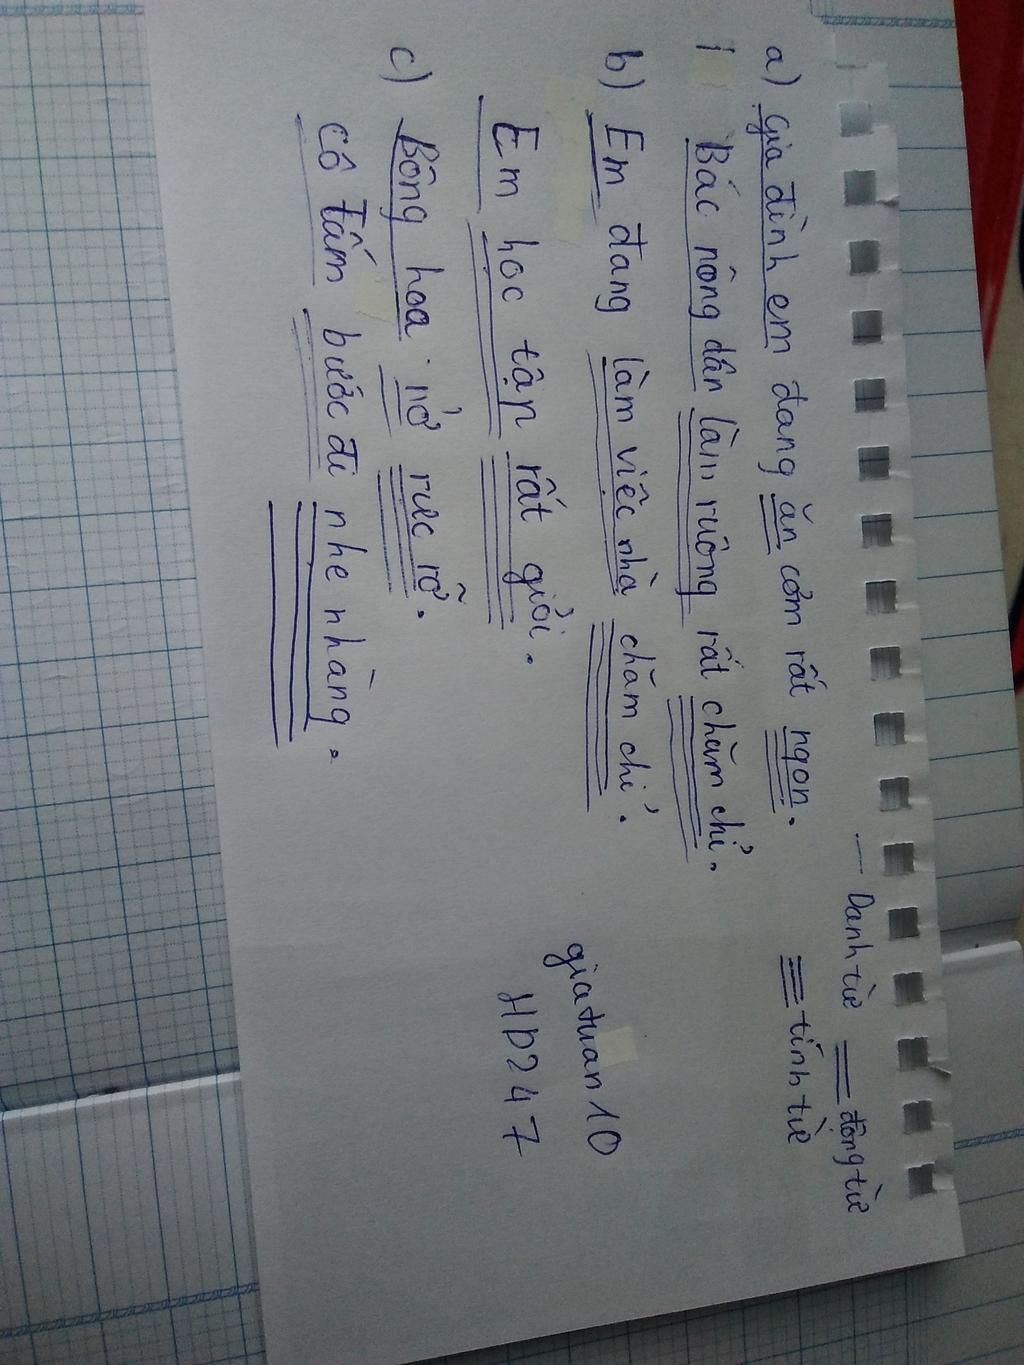 a) Gia đình em đang ăn cơm rất ngon.
Bác nông dân làm ruộng rất chăm chỉ.
b) Em đang làm việc nhà chăm chỉ.
Em học tập rất giỏi.
c) Bông hoa nở rực rỡ.
Cô Tấm bước đi nhẹ nhàng.
— Danh từ = động từ
≡ tính từ
giatuan10
HD247